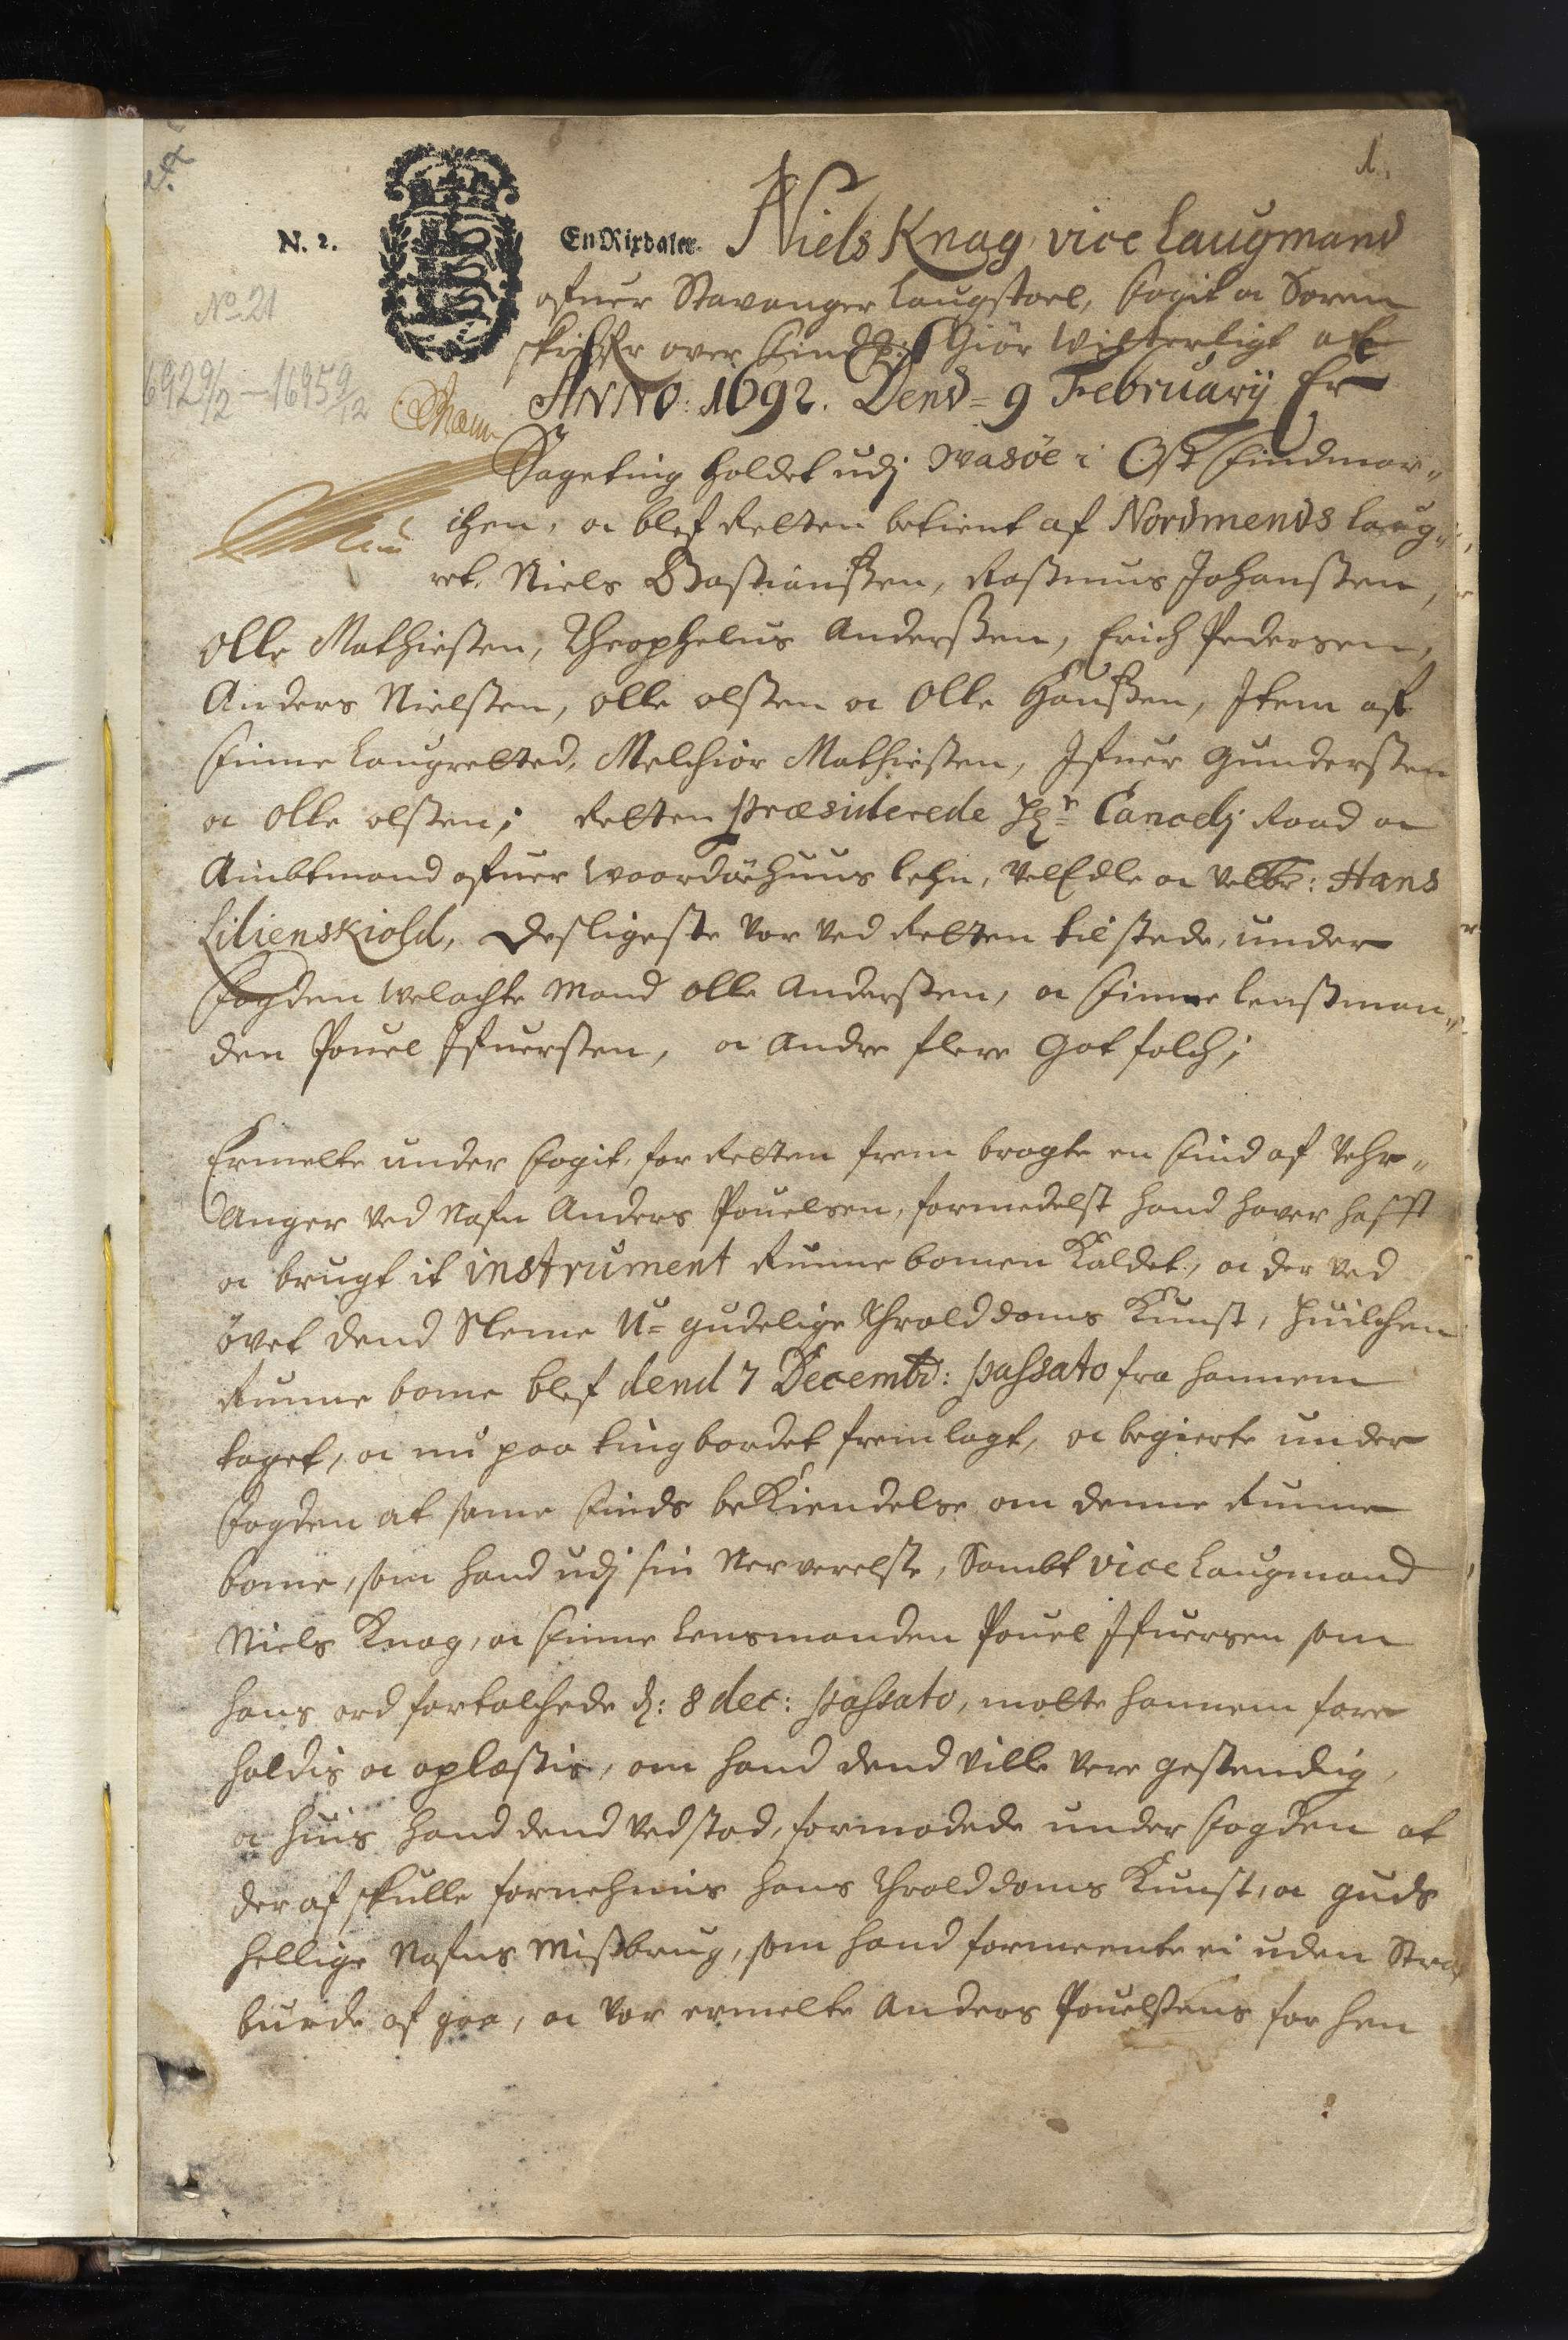 1.
N. 2.
En Rixdaler.
Niels Knag vice Laugmand
ofuer Stavanger Laugstoel, Fogit oc Soren
skrifver over Findm: Giør Witterligt at
No 21
1692 9/2 - 1695 9/12
Anno: 1692. Dend = 9 Februarij Er
Sageting holdet udj Wasöe i Ost Findmar„
chen, oc blef Retten betient af Nordmends Laug„
ret. Niels Bastiansten, Rasmus Johansten,
Olle Mathiesten, Theophelus Anderssen, Erich Pedersen,
Anders Nielsten, Olle Olsten oc Olle Hanssen, Item af
Finne Laugretted, Melchior Mathiesten, Ifuer Gundersten
oc Olle Olsten; Retten præsiderede Hr= Cancelj Raad oc
Ambtmand ofuer Woordöehuus lehn, VelEdle oc Velbr: Hans
Lilienskiold, Desligeste var ved Retten til stede, under
Fogden Welachte Mand Olle Anderssen, oc Finne Lenssman„
den Pouel Ifuersten, oc Andre flere Got folch;
Ermelte under Fogit, for Retten frem bragte en Find af Vehr„
Anger ved Nafn Anders Pouelsen, formedelst hand haver hafft
oc brugt it instrument Runnebomen Kaldet, oc der ved
övet dend Slemme U=gudelige Throlddoms Kunst, huilchen
Runne bome blef dend 7 Decembr: passato fra hannem
taget, oc nu paa tingbordet fremlagt, oc begierte under
Fogden at samme Finds beKiendelse om denne Runne
bome, som hand udj sin Nerverelse, Sambt vice Laugmand
Niels Knag, oc Finne Lensmanden Pouel Ifuersen som
hans ord fortolchede d: 8 dec: passato, motte hannem fore
holdis oc oplæssis, om hand dend ville vere gestendig,
oc huis hand dend vedstod, formodede under Fogden at
der af skulle fornehmis hans Throlddoms Kunst, oc Guds
hellige Nafns Missbrug, som hand formeente ei uden Straf
burde af gaa, oc var ermelte Anders Pouelssens for hen